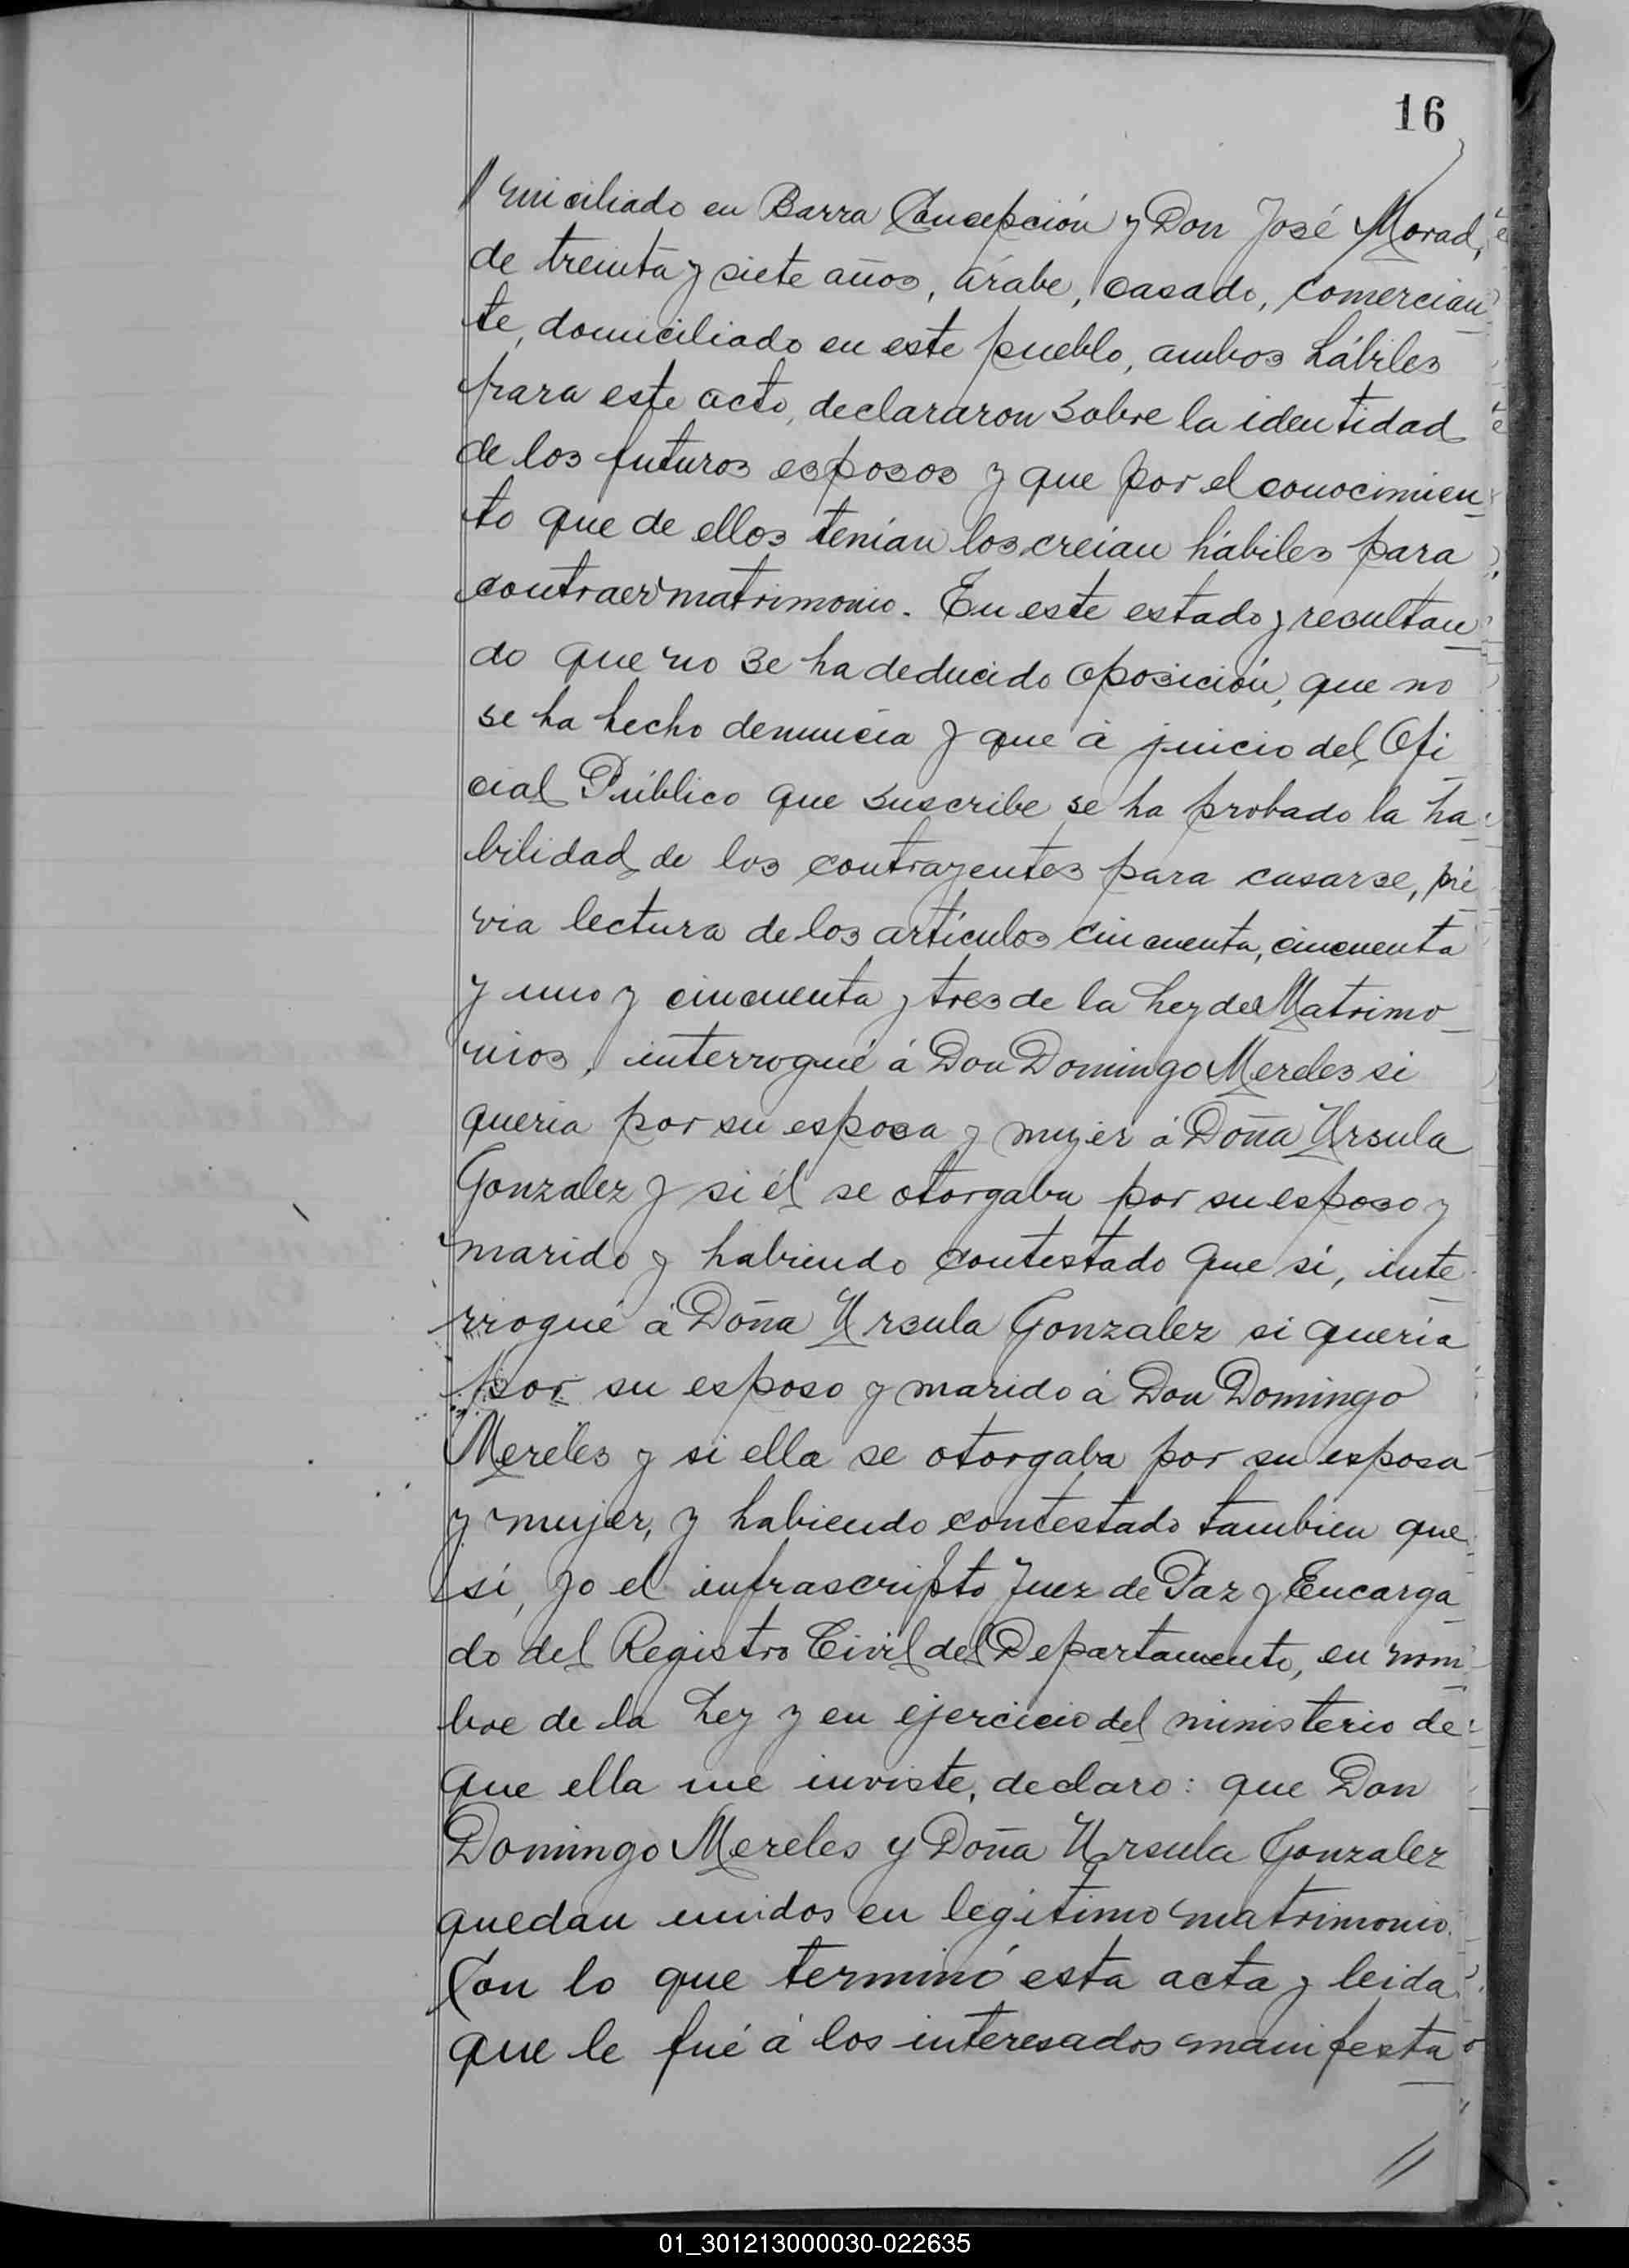 16
miciliado en Barra Concepción y Don José Morad,
de treinta y siete años, árabe, casado, comercian
te, domiciliado en este pueblo, ambos hábiles
para este acto, declararon sobre la identidad
de los futuros esposos y que por el conocimien
to que de ellos tenían los creían hábiles para
contraer matrimonio. En este estado y resultan
do que no se ha deducido oposición, que no
se ha hecho denuncia y que á juicio del Ofi
cial Público que suscribe se ha probado la ha
bilidad de los contrayentes para casarse, pré
via lectura de los artículos cincuenta, cincuenta
y uno y cincuenta y tres de la Ley de Matrimo
nios, interrogué á Don Domingo Mereles si
quería por su esposa y mujer á Doña Ursula
Gonzalez y si él se otorgaba por su esposo y
marido y habiendo contestado que sí, inte
rrogué á Doña Ursula Gonzalez si quería
por su esposo y marido á Don Domingo
Mereles y si ella se otorgaba por su esposa
y mujer, y habiendo contestado tambien que
sí, yo el infrascripto Juez de Paz y Encarga
do del Registro Civil del Departamento, en nom
bre de la Ley y en ejercicio del ministerio de
que ella me inviste, declaro: que Don
Domingo Mereles y Doña Ursula Gonzalez
quedan unidos en legítimo matrimonio.
Con lo que terminó esta acta y leida
que le fué á los interesados manifesta
01_301213000030-022635